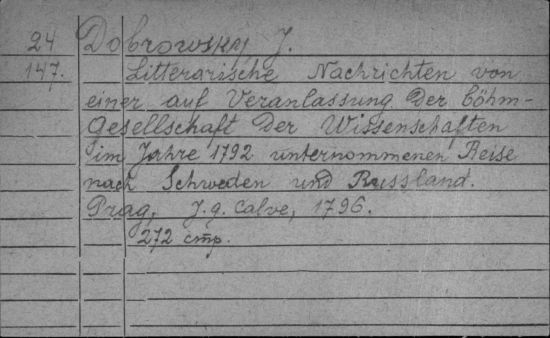 24 Dobrowsky J.
147. Litterarische Nachrichten von
einer auf Veranlassung der böhm-
Gesellschaft der Wissenschaften
im Jahre 1792 unternommenen Reise
nach Schweden und Russland.
Prag, J.g. Calve, 1796.
272 cmp.